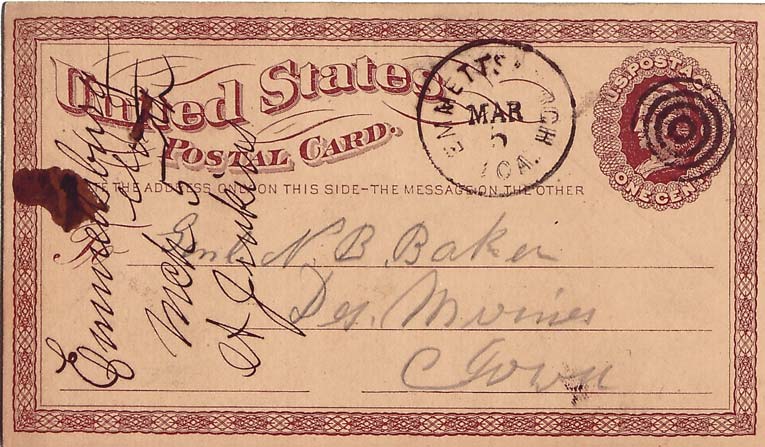 United States
POSTAL CARD.
U.S. POSTAGE
ONE CENT
EMMETTSBURGH
MAR
5
IOA.
WRITE THE ADDRESS ONLY ON THIS SIDE—THE MESSAGE ON THE OTHER
Genl N. B. Baker
Des. Moines
Iowa
Emmetsburg
Mch 5
A Jenkins